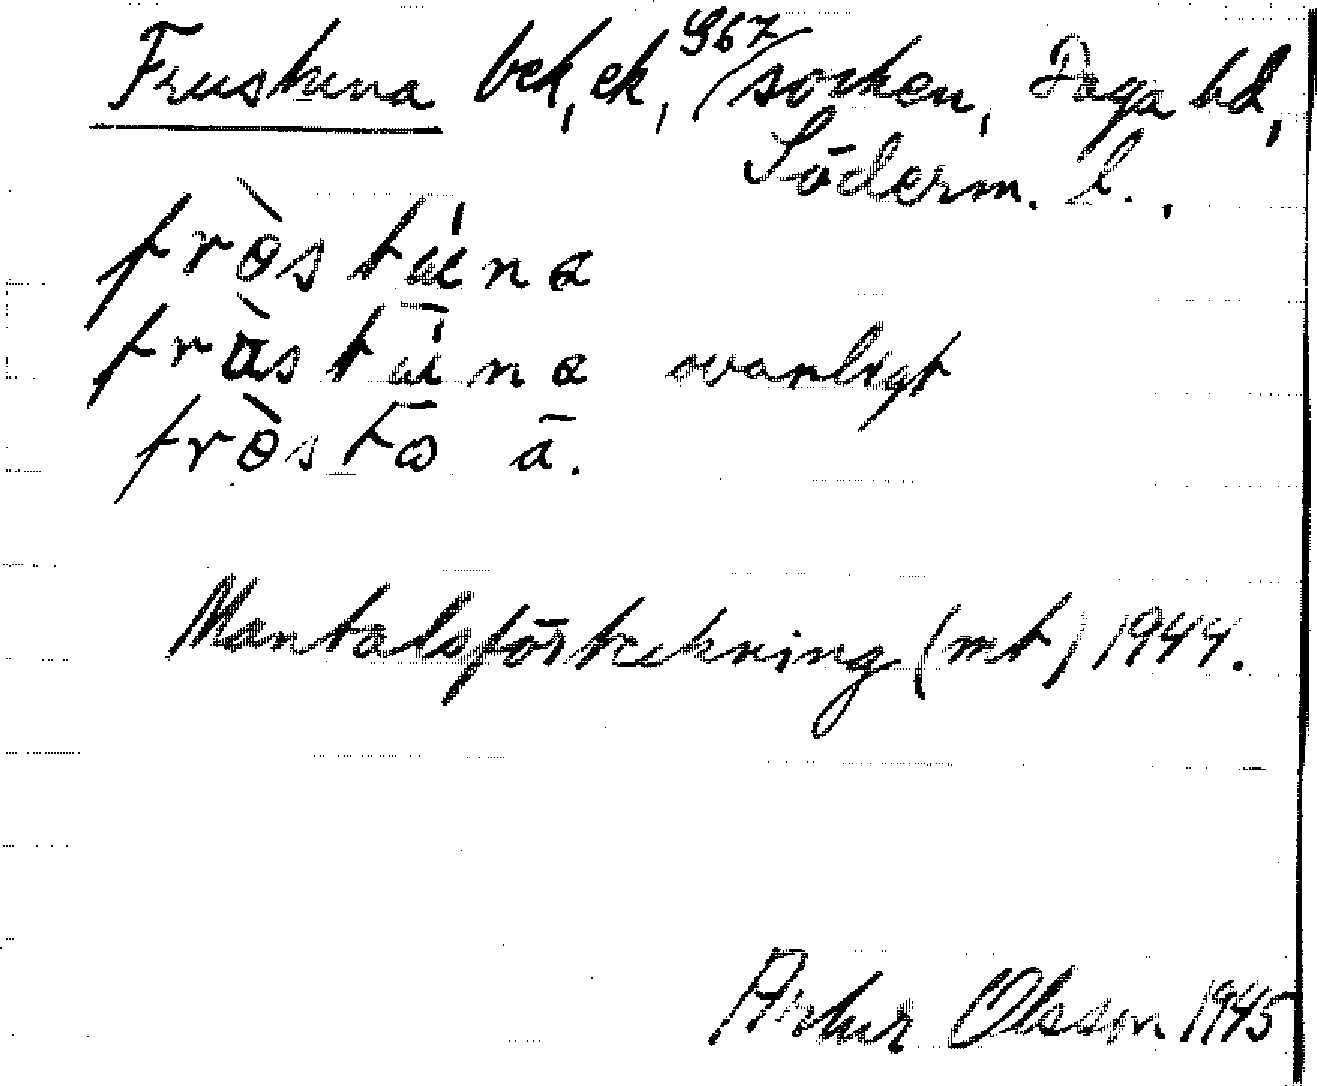 Frustuna bek, ek, 967 socken, Daga hd,
Söderm. l.,
frѳ̀stúna
frɑ̀stúna ovanligt
frѳ̀stѡ ā.
Mantalsförteckning (mt) 1944.
Arthur Olsson 1945